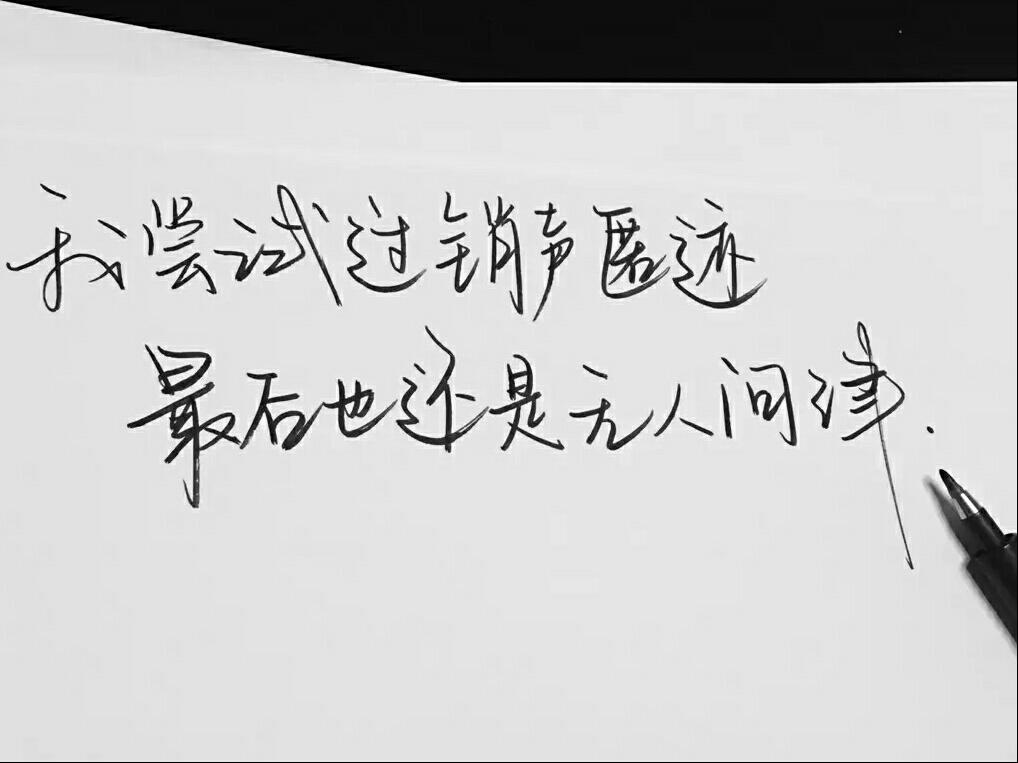 我尝试过销声匿迹
最后也还是无人问津.